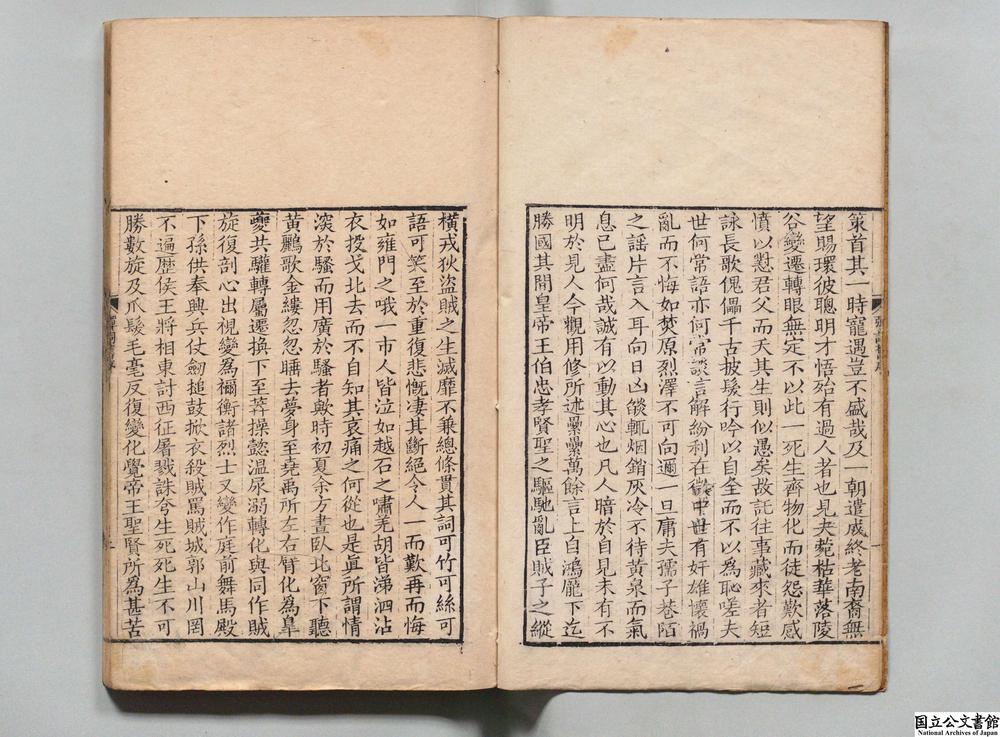 策首其一時寵遇豈不盛哉及一朝遣戍終老南裔無
望賜環彼聰明才悟殆有過人者也見夫菀枯華落陵
谷變遷轉眼無定不以此一死生齊物化而徒怨歎感
憤以懟君父而夭其生則似愚矣故託往事藏來者短
詠長歌傀儡千古披髮行吟以自全而不以爲恥嗟夫
世何常語亦何常談言解紛利在微中世有奸雄懷禍
亂而不悔如焚原烈澤不可向邇一旦庸夫孺子巷陌
之謡片言入耳向日凶燄輒烟銷灰冷不待黃泉而氣
息已盡何哉誠有以動其心也凡人暗於自見未有不
明於見人今觀用修所述纍纍萬餘言上自鴻厖下迄
勝國其間皇帝王伯忠孝賢聖之驅馳亂臣賊子之縱
橫戎狄盜賊之生滅靡不兼總條貫其詞可竹可絲可
語可笑至於重復悲慨凄其斷絕令人一而歎再而悔
如雍門之哦一市人皆泣如越石之嘯羌胡皆涕泗沾
衣投戈北去而不自知其哀痛之何從也是眞所謂情
深於騷而用廣於騷者歟時初夏余方晝臥北窗下聽
黃鸝歌金縷忽忽睡去夢身至堯禹所左右臂化爲臯
夔共驩轉屬遷換下至莽操懿温尿溺轉化與同作賊
旋復剖心出視變爲禰衡諸烈士又變作庭前舞馬殿
下孫供奉興兵仗劒搥鼓掀衣殺賊罵賊城郭山川罔
不遍歷侯王將相東討西征屠戮誅夸生死死生不可
勝數旋及爪髮毛毫反復變化覺帝王聖賢所爲甚苦
国立公文書館
National Archives of Japan